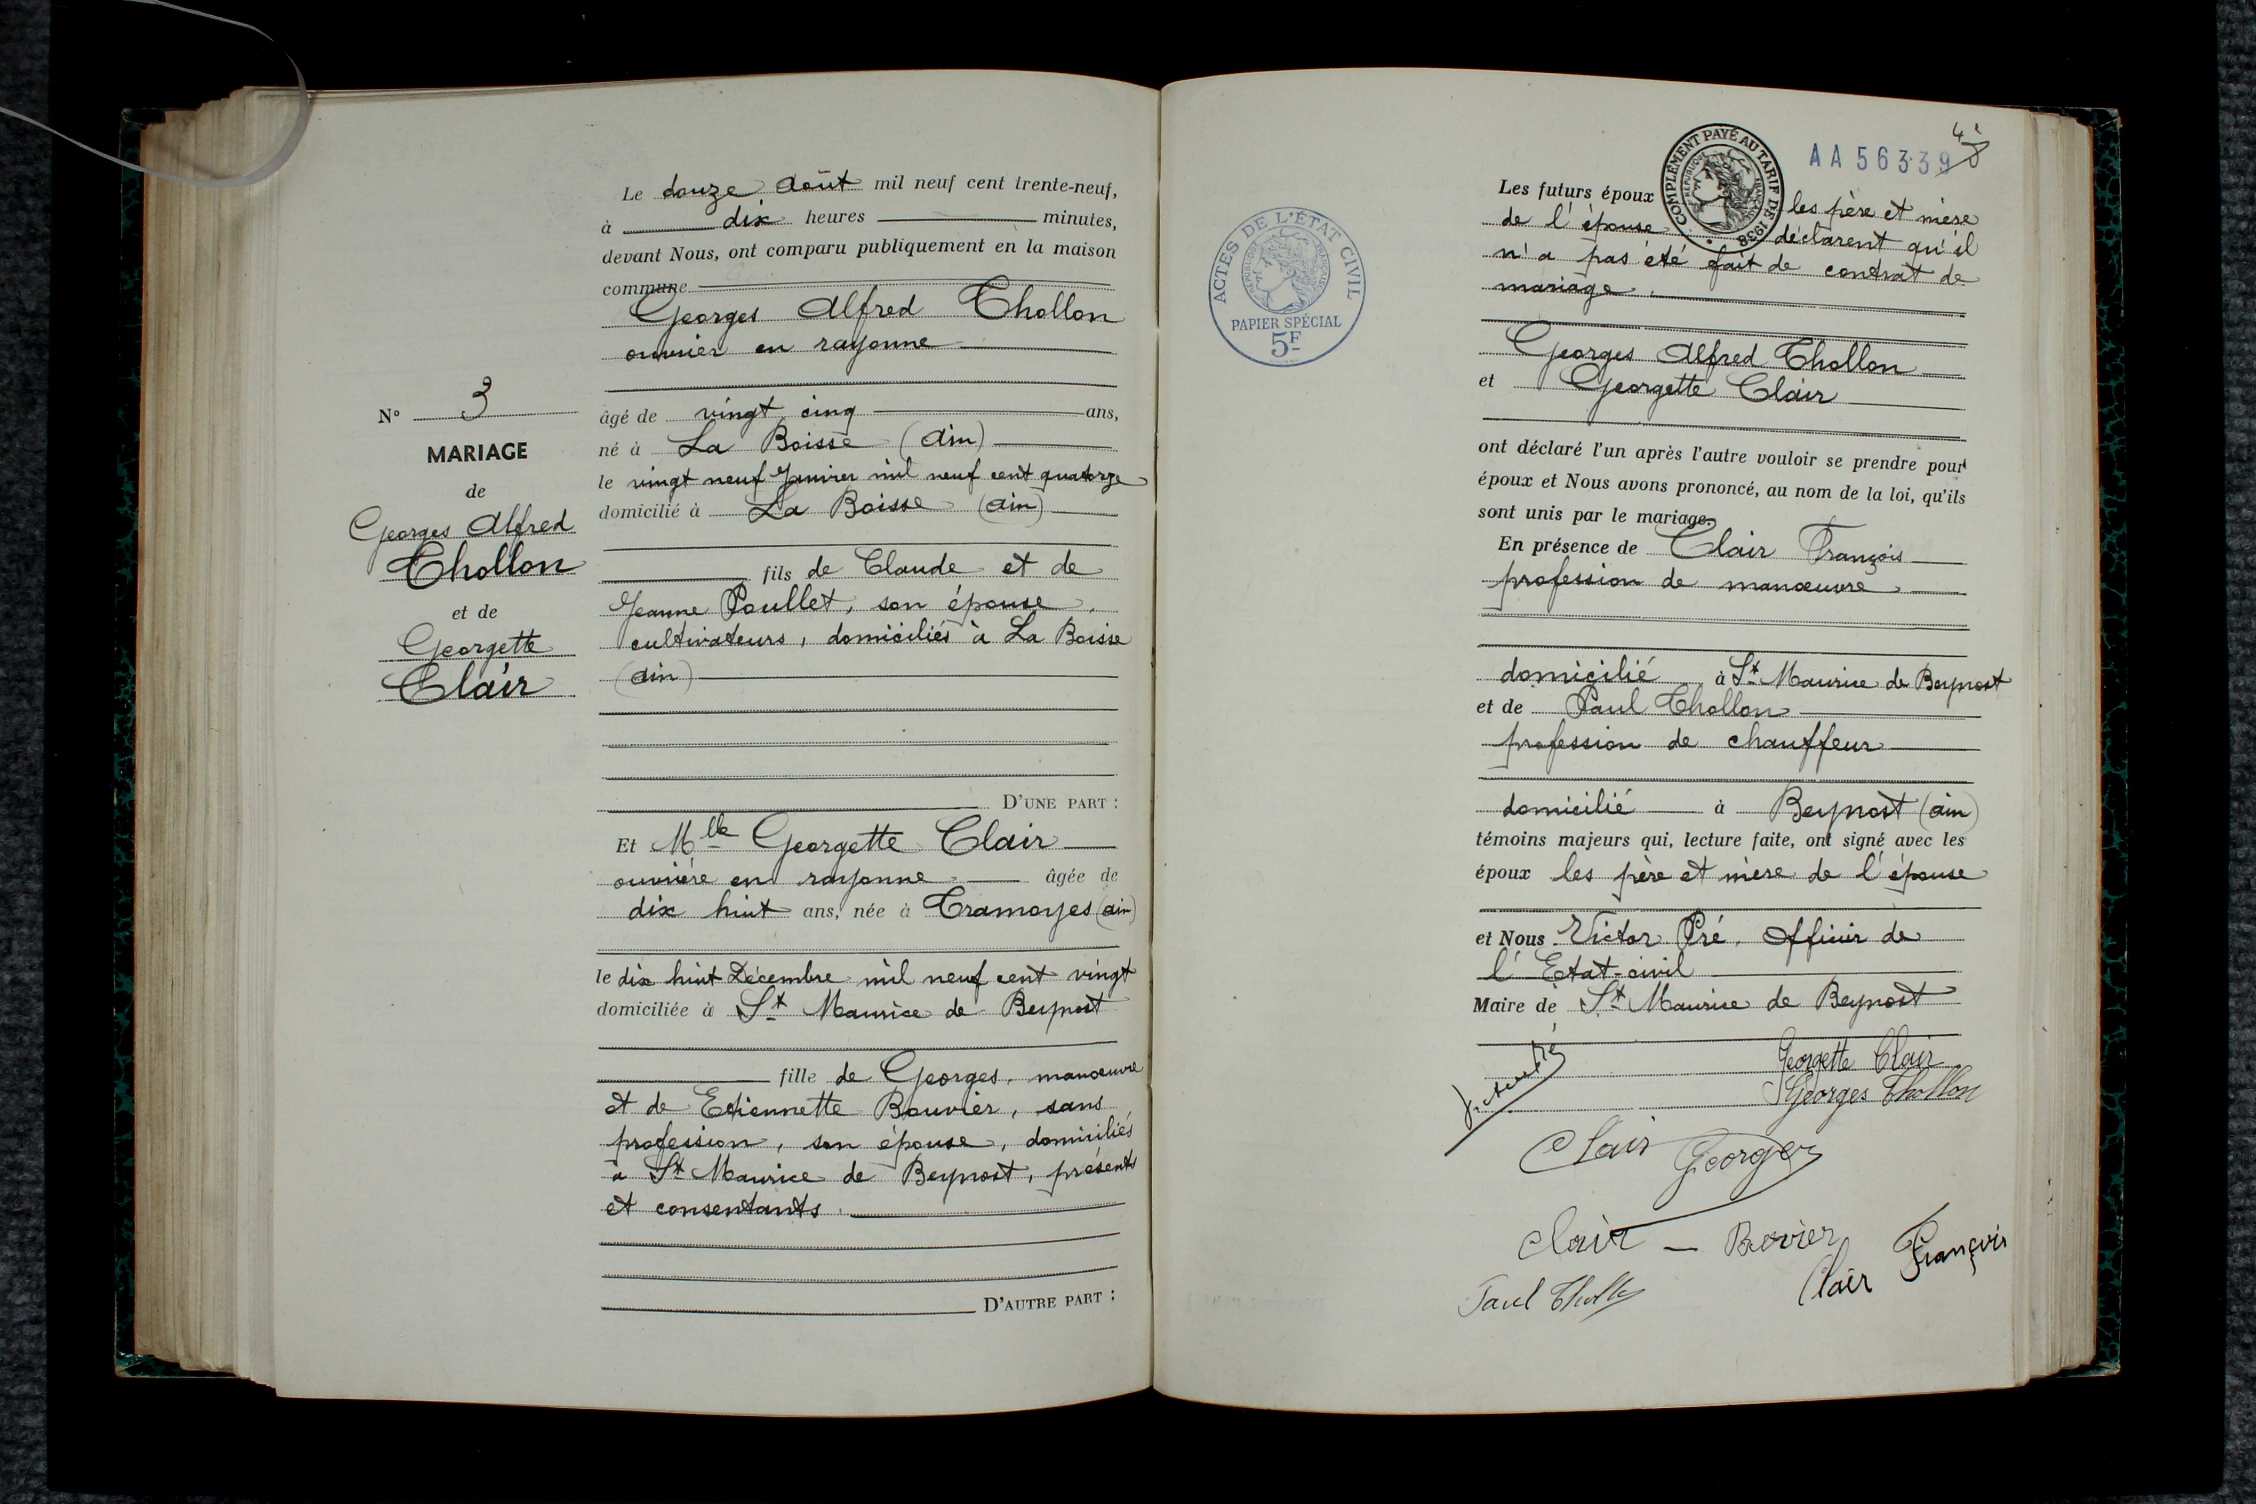 N° 3
MARIAGE
de
Georges Alfred
Thollon
et de
Georgette
Clair
Le douze Août mil neuf cent trente-neuf,
à dix heures minutes,
devant Nous, ont comparu publiquement en la maison
commune
Georges Alfred Thollon
ouvrier en rayonne
âgé de vingt cinq ans,
né à La Boisse (Ain)
le vingt neuf Janvier mil neuf cent quatorze
domicilié à La Boisse (Ain)
fils de Claude et de
Jeanne Poullet, son épouse,
cultivateurs, domiciliés à La Boisse
(Ain)
D'UNE PART :
Et Mlle Georgette Clair
ouvrière en rayonne âgée de
dix huit ans, née à Tramoyes (Ain)
le dix huit Décembre mil neuf cent vingt
domiciliée à St Maurice de Beynost
fille de Georges, manœuvre
et de Etiennette Bouvier, sans
profession, son épouse, domiciliés
à St Maurice de Beynost, présents
et consentants.
D'AUTRE PART :
ACTES DE L'ÉTAT CIVIL
RÉPUBLIQUE FRANÇAISE
PAPIER SPÉCIAL
5F
COMPLÉMENT PAYÉ AU TARIF DE 1938
RÉPUBLIQUE FRANÇAISE
AA 56339
Les futurs époux les père et mère
de l'épouse déclarent qu'il
n'a pas été fait de contrat de
mariage.
Georges Alfred Thollon
et Georgette Clair
ont déclaré l'un après l'autre vouloir se prendre pour
époux et Nous avons prononcé, au nom de la loi, qu'ils
sont unis par le mariage.
En présence de Clair François
profession de manœuvre
domicilié à St Maurice de Beynost
et de Paul Thollon
profession de chauffeur
domicilié à Beynost (Ain)
témoins majeurs qui, lecture faite, ont signé avec les
époux les père et mère de l'épouse
et Nous Victor Pré, Officier de
l'Etat-civil
Maire de St Maurice de Beynost
Georgette Clair
Georges Thollon
Victor Pré
Clair Georges
Clair - Bovier
Clair François
Paul Thollon